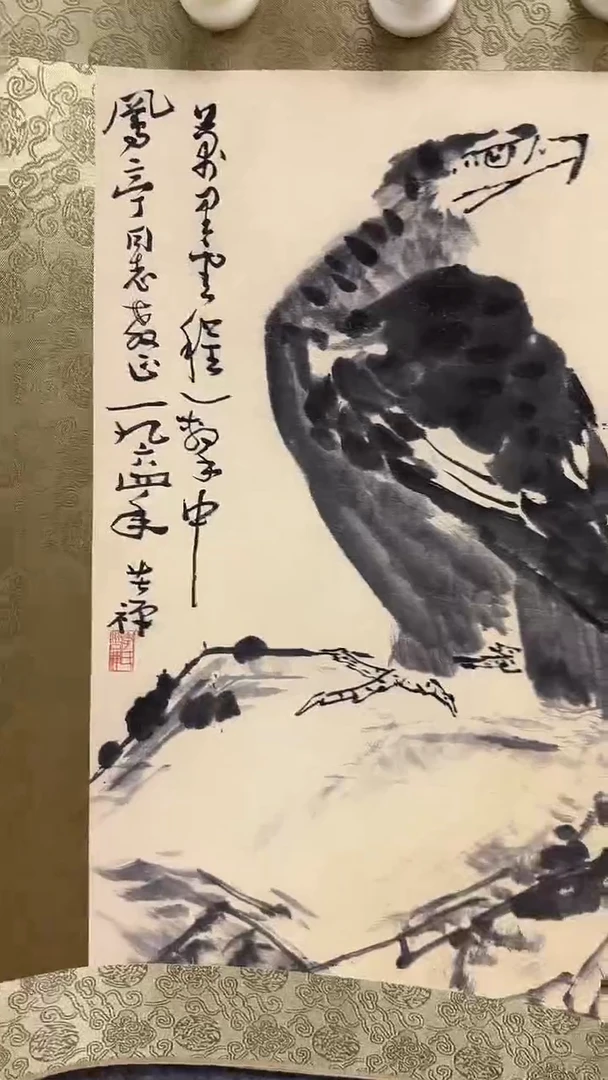 萬里雲程一擊中
鳳亭同志教正一九六四年苦禪